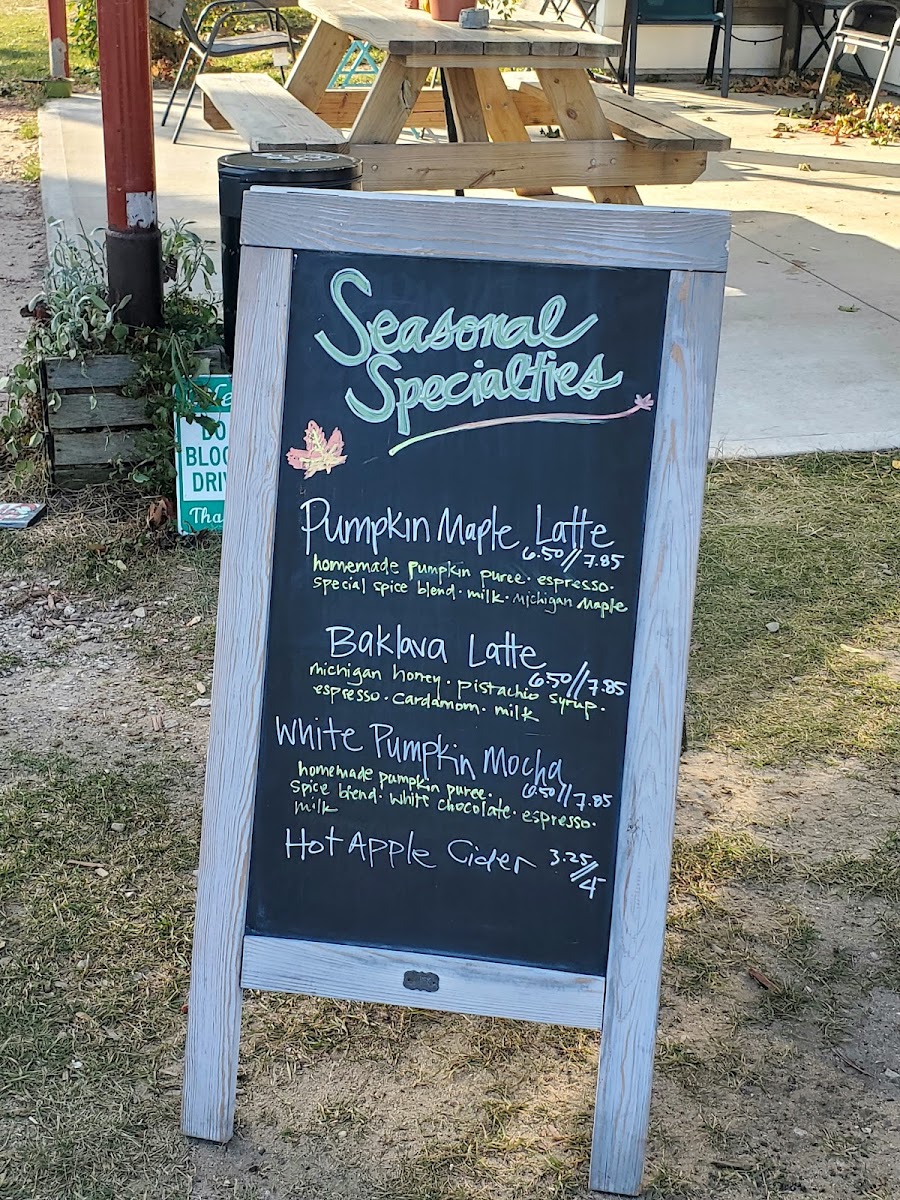 Seasonal
Specialties
Pumpkin Maple Latte
6.50//7.85
homemade pumpkin puree · espresso ·
special spice blend · milk · Michigan Maple
Baklava Latte
6.50//7.85
michigan honey · pistachio syrup ·
espresso · cardamom · milk
White Pumpkin Mocha
6.50//7.85
homemade pumpkin puree ·
spice blend · white chocolate · espresso ·
milk
Hot Apple Cider 3.25//4
DO
BLOC
DRIV
Tha